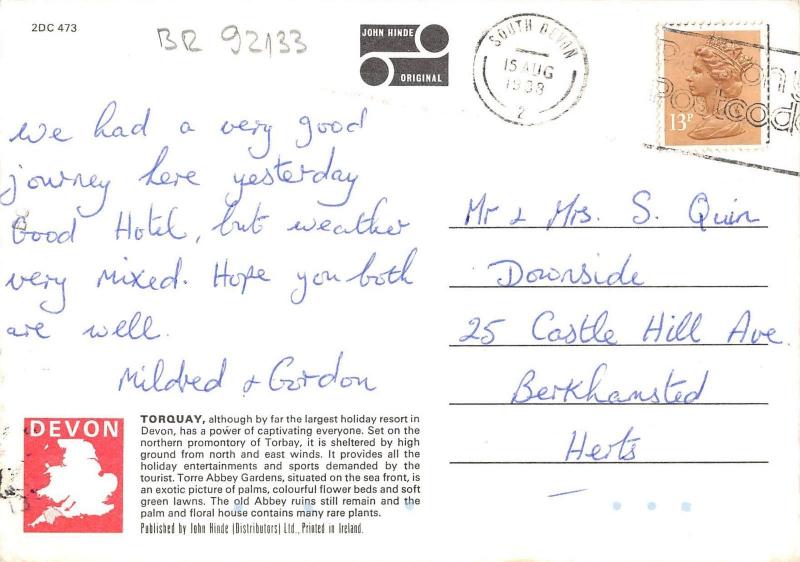 2DC 473
BR 92133
JOHN HINDE
ORIGINAL
SOUTH DEVON
15 AUG
1988
2
Postcode
13P
We had a very good
journey here yesterday
Good Hotel, but weather
very mixed. Hope you both
are well.
Mildred & Gordon
Mr & Mrs. S. Quin
Downside
25 Castle Hill Ave.
Berkhamsted
Herts
DEVON
TORQUAY, although by far the largest holiday resort in
Devon, has a power of captivating everyone. Set on the
northern promontory of Torbay, it is sheltered by high
ground from north and east winds. It provides all the
holiday entertainments and sports demanded by the
tourist. Torre Abbey Gardens, situated on the sea front, is
an exotic picture of palms, colourful flower beds and soft
green lawns. The old Abbey ruins still remain and the
palm and floral house contains many rare plants.
Published by John Hinde (Distributors) Ltd., Printed in Ireland.